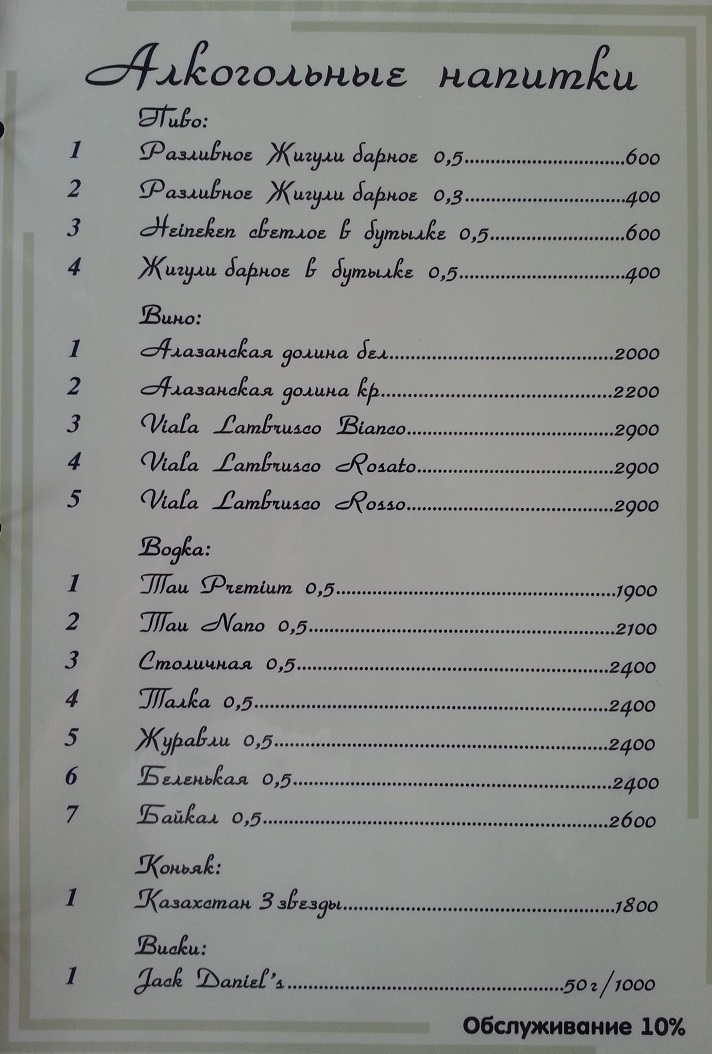 Алкогольные напитки
Пиво:
1 Разливное Жигули барное 0,5...........................600
2 Разливное Жигули барное 0,3...........................400
3 Heineken светлое в бутылке 0,5.......................600
4 Жигули барное в бутылке 0,5............................400
Вино:
1 Алазанская долина бел.......................................2000
2 Алазанская долина кр........................................2200
3 Viala Lambrusco Bianco....................................2900
4 Viala Lambrusco Rosato..................................2900
5 Viala Lambrusco Rosso....................................2900
Водка:
1 Тау Premium 0,5...............................................1900
2 Тау Nano 0,5....................................................2100
3 Столичная 0,5....................................................2400
4 Талка 0,5............................................................2400
5 Журавли 0,5........................................................2400
6 Беленькая 0,5.....................................................2400
7 Байкал 0,5...........................................................2600
Коньяк:
1 Казахстан 3 звезды..............................................1800
Виски:
1 Jack Daniel's..............................................50г/1000
Обслуживание 10%